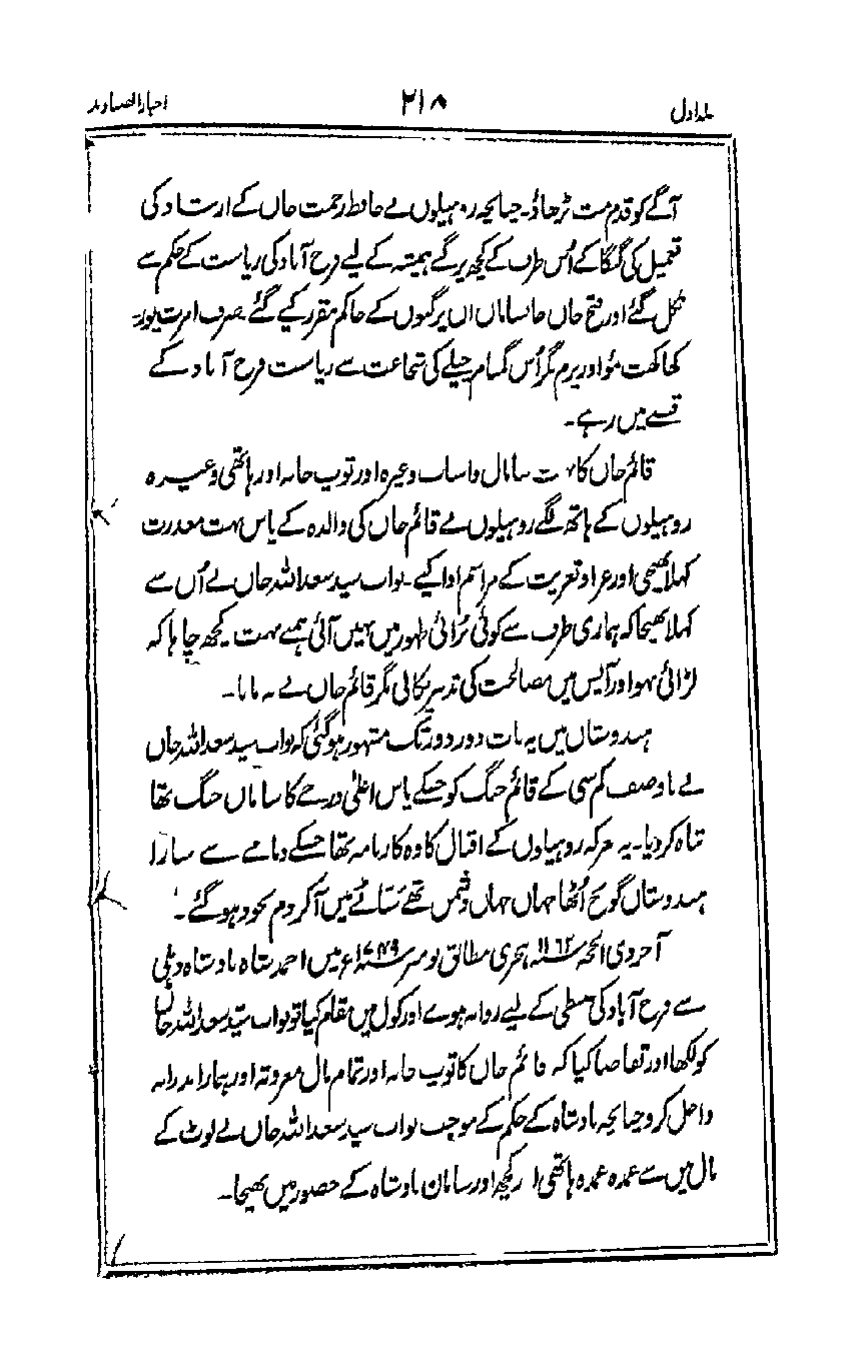 جلد اول ۲۱۸ اخبار الصنادید
آگے کو قدم مت بڑھاؤ۔ چنانچہ روہیلوں نے حافظ رحمت خاں کے ارشاد کی
تعمیل کی گنگا کے اُس طرف کے کچھ پرگنے ہمیشہ کے لیے فرخ آباد کی ریاست کے حکم سے
نکل گئے اور فتح خاں خانساماں ان پرگنوں کے حاکم مقرر کیے گئے۔ صرف امرت پور
کھاکھت مؤ اور پرم نگر اُس گمنام چیلے کی شجاعت سے ریاست فرخ آباد کے
قبضے میں رہے۔
قائم خاں کا بہت سا مال و اسباب وغیرہ اور توپ خانہ اور ہاتھی وغیرہ
روہیلوں کے ہاتھ لگے روہیلوں نے قائم خاں کی والدہ کے پاس بہت معذرت
کہلا بھیجی اور عزا و تعزیت کے مراسم ادا کیے۔ نواب سید سعد اللہ خاں نے اُن سے
کہلا بھیجا کہ ہماری طرف سے کوئی بُرائی ظہور میں نہیں آئی ہمنے بہت کچھ چاہا کہ
لڑائی نہو اور آپس میں مصالحت کی تدبیر نکالی مگر قائم خاں نے نہ مانا۔
ہندوستاں میں یہ بات دور دور تک مشہور ہوگئی کہ نواب سید سعد اللہ خاں
نے باوصف کم سنی کے قائم جنگ کو جسکے پاس اعلیٰ درجے کا سامان جنگ تھا
تباہ کر دیا۔ یہ معرکہ روہیلوں کے اقبال کا وہ کارنامہ تھا جسکے دمامے سے سارا
ہندوستاں گونج اُٹھا جہاں جہاں دشمن تھے سَنّاٹے میں آکر دم بخود ہوگئے۔
آخر ذی الحجہ ۱۱۶۲ ہجری مطابق نومبر ۱۷۴۹ء میں احمد شاہ بادشاہ دہلی
سے فرخ آباد کی ضبطی کے لیے روانہ ہوے اور کول میں مقام کیا تو نواب سید سعد اللہ خاں
کو لکھا اور تقاضا کیا کہ قائم خاں کا توپ خانہ اور تمام مال معروقہ اور ہمارا نذرانہ
داخل کرو چنانچہ بادشاہ کے حکم کے موجب نواب سید سعد اللہ خاں نے لوٹ کے
مال میں سے عمدہ عمدہ ہاتھی اور کچھ اور سامان بادشاہ کے حضور میں بھیجا۔